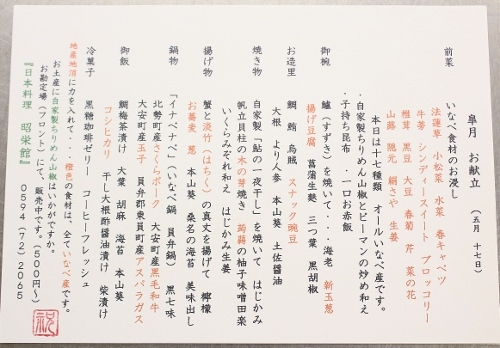 皐月 お献立 (五月 十七日)
前菜
いなべ食材のお浸し
法蓮草 小松菜 水菜 春キャベツ
牛蒡 シンディースイート ブロッコリー
椎茸 黒豆 大豆 春菊 芹 菜の花
山蕗 隠元 絹さや 生姜
本日は十七種類 オールいなべ産です。
・自家製ちりめん山椒とピーマンの炒め和え
・子持ち昆布 ・一口お赤飯
御椀
鱸(すずき)を焼いて・・・海老 新玉葱
揚げ豆腐 菖蒲生麩 三つ葉 黒胡椒
お造里
鯛 鮪 烏賊 スナック豌豆
大根 より人参 本山葵 土佐醤油
焼き物
自家製「鮎の一夜干し」を焼いて はじかみ
帆立貝柱の木の芽焼き 蒟蒻の柚子味噌田楽
いくらみぞれ和え はじかみ生姜
揚げ物
蟹と淡竹(はちく)の真丈を揚げて 檸檬
お蕎麦 葱 本山葵 桑名の海苔 美味出し
鍋物
「イナベナベ」(いなべ鍋 員弁鍋) 黒七味
北勢町産さくらポーク 大安町産黒毛和牛
大安町産玉子 員弁郡東員町産アスパラガス
御飯
鯛梅茶漬け 大葉 胡麻 海苔 本山葵
コシヒカリ 干し大根酢醤油漬け 柴漬け
冷菓子
黒糖珈琲ゼリー コーヒーフレッシュ
地産地消に力を入れて・・橙色の食材は、全ていなべ産です。
お土産に自家製ちりめん山椒はいかがですか。
お勘定場(フロント)にて、販売中です。(500円~)
『日本料理 昭栄館』 0594(72)2065